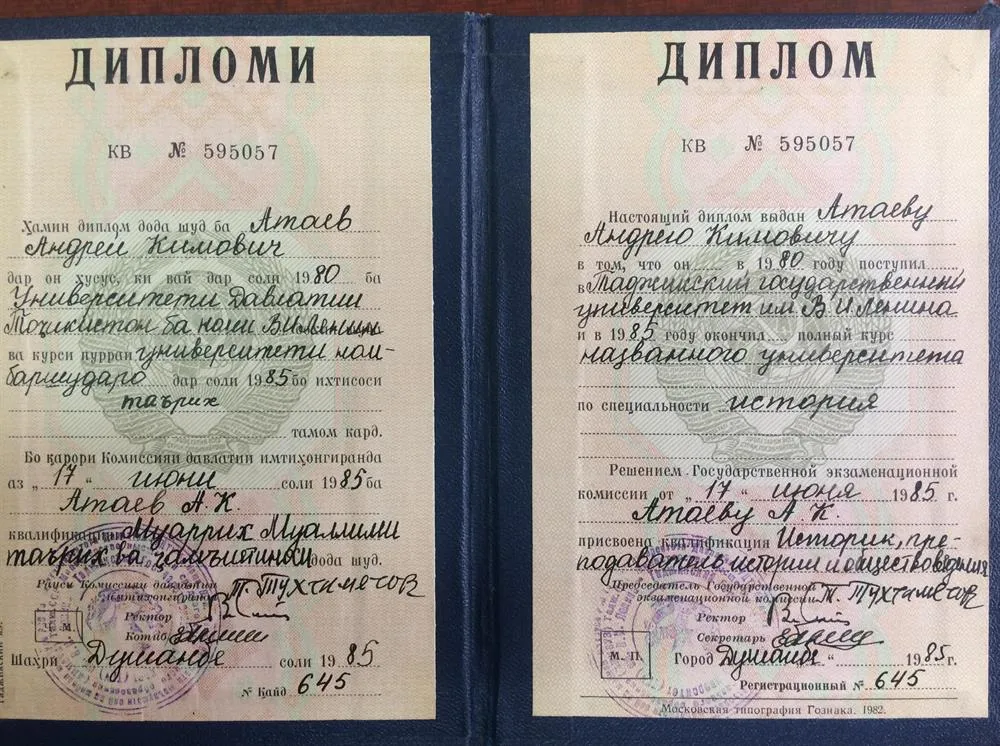 ДИПЛОМИ
КВ № 595057
Ҳамин диплом дода шуд ба Атаев
Андрей Кимович
дар он хусус, ки вай дар соли 1980 ба
Университети Давлатии
Тоҷикистон ба номи В.И.Ленин
ва курси пурраи университети ном-
баршударо дар соли 1985 бо ихтисоси
таърих
тамом кард.
Бо қарори Комиссияи давлатии имтиҳонгиранда
аз „17" июни соли 1985 ба
Атаев А.К.
квалификацияи Муаррих Муаллими
таърих ва ҷамъиятшиносӣ дода шуд.
Раиси Комиссияи давлатии
имтиҳонгиранда Т. Тухтаметов
Ректор
Котиб
Ҷ. М.
Шаҳри Душанбе соли 1985
№ Қайд 645
ДИПЛОМ
КВ № 595057
Настоящий диплом выдан Атаеву
Андрею Кимовичу
в том, что он в 1980 году поступил
в Таджикский государственный
университет им В.И.Ленина
и в 1985 году окончил полный курс
названного университета
по специальности история
Решением Государственной экзаменационной
комиссии от „17" июня 1985 г.
Атаеву А. К.
присвоена квалификация Историк, пре-
подаватель истории и обществоведения
Председатель Государственной
экзаменационной комиссии Т. Тухтаметов
Ректор
Секретарь
М. П.
Город Душанбе " 1985 г.
Регистрационный № 645
Московская типография Гознака. 1982.